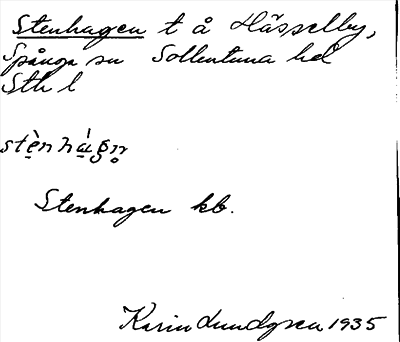 Stenhagen t å Hässelby,
Spånga sn Sollentuna hd
Sth l
stὲnhágn̥
Stenhagen kb.
Karin Lundgren 1935